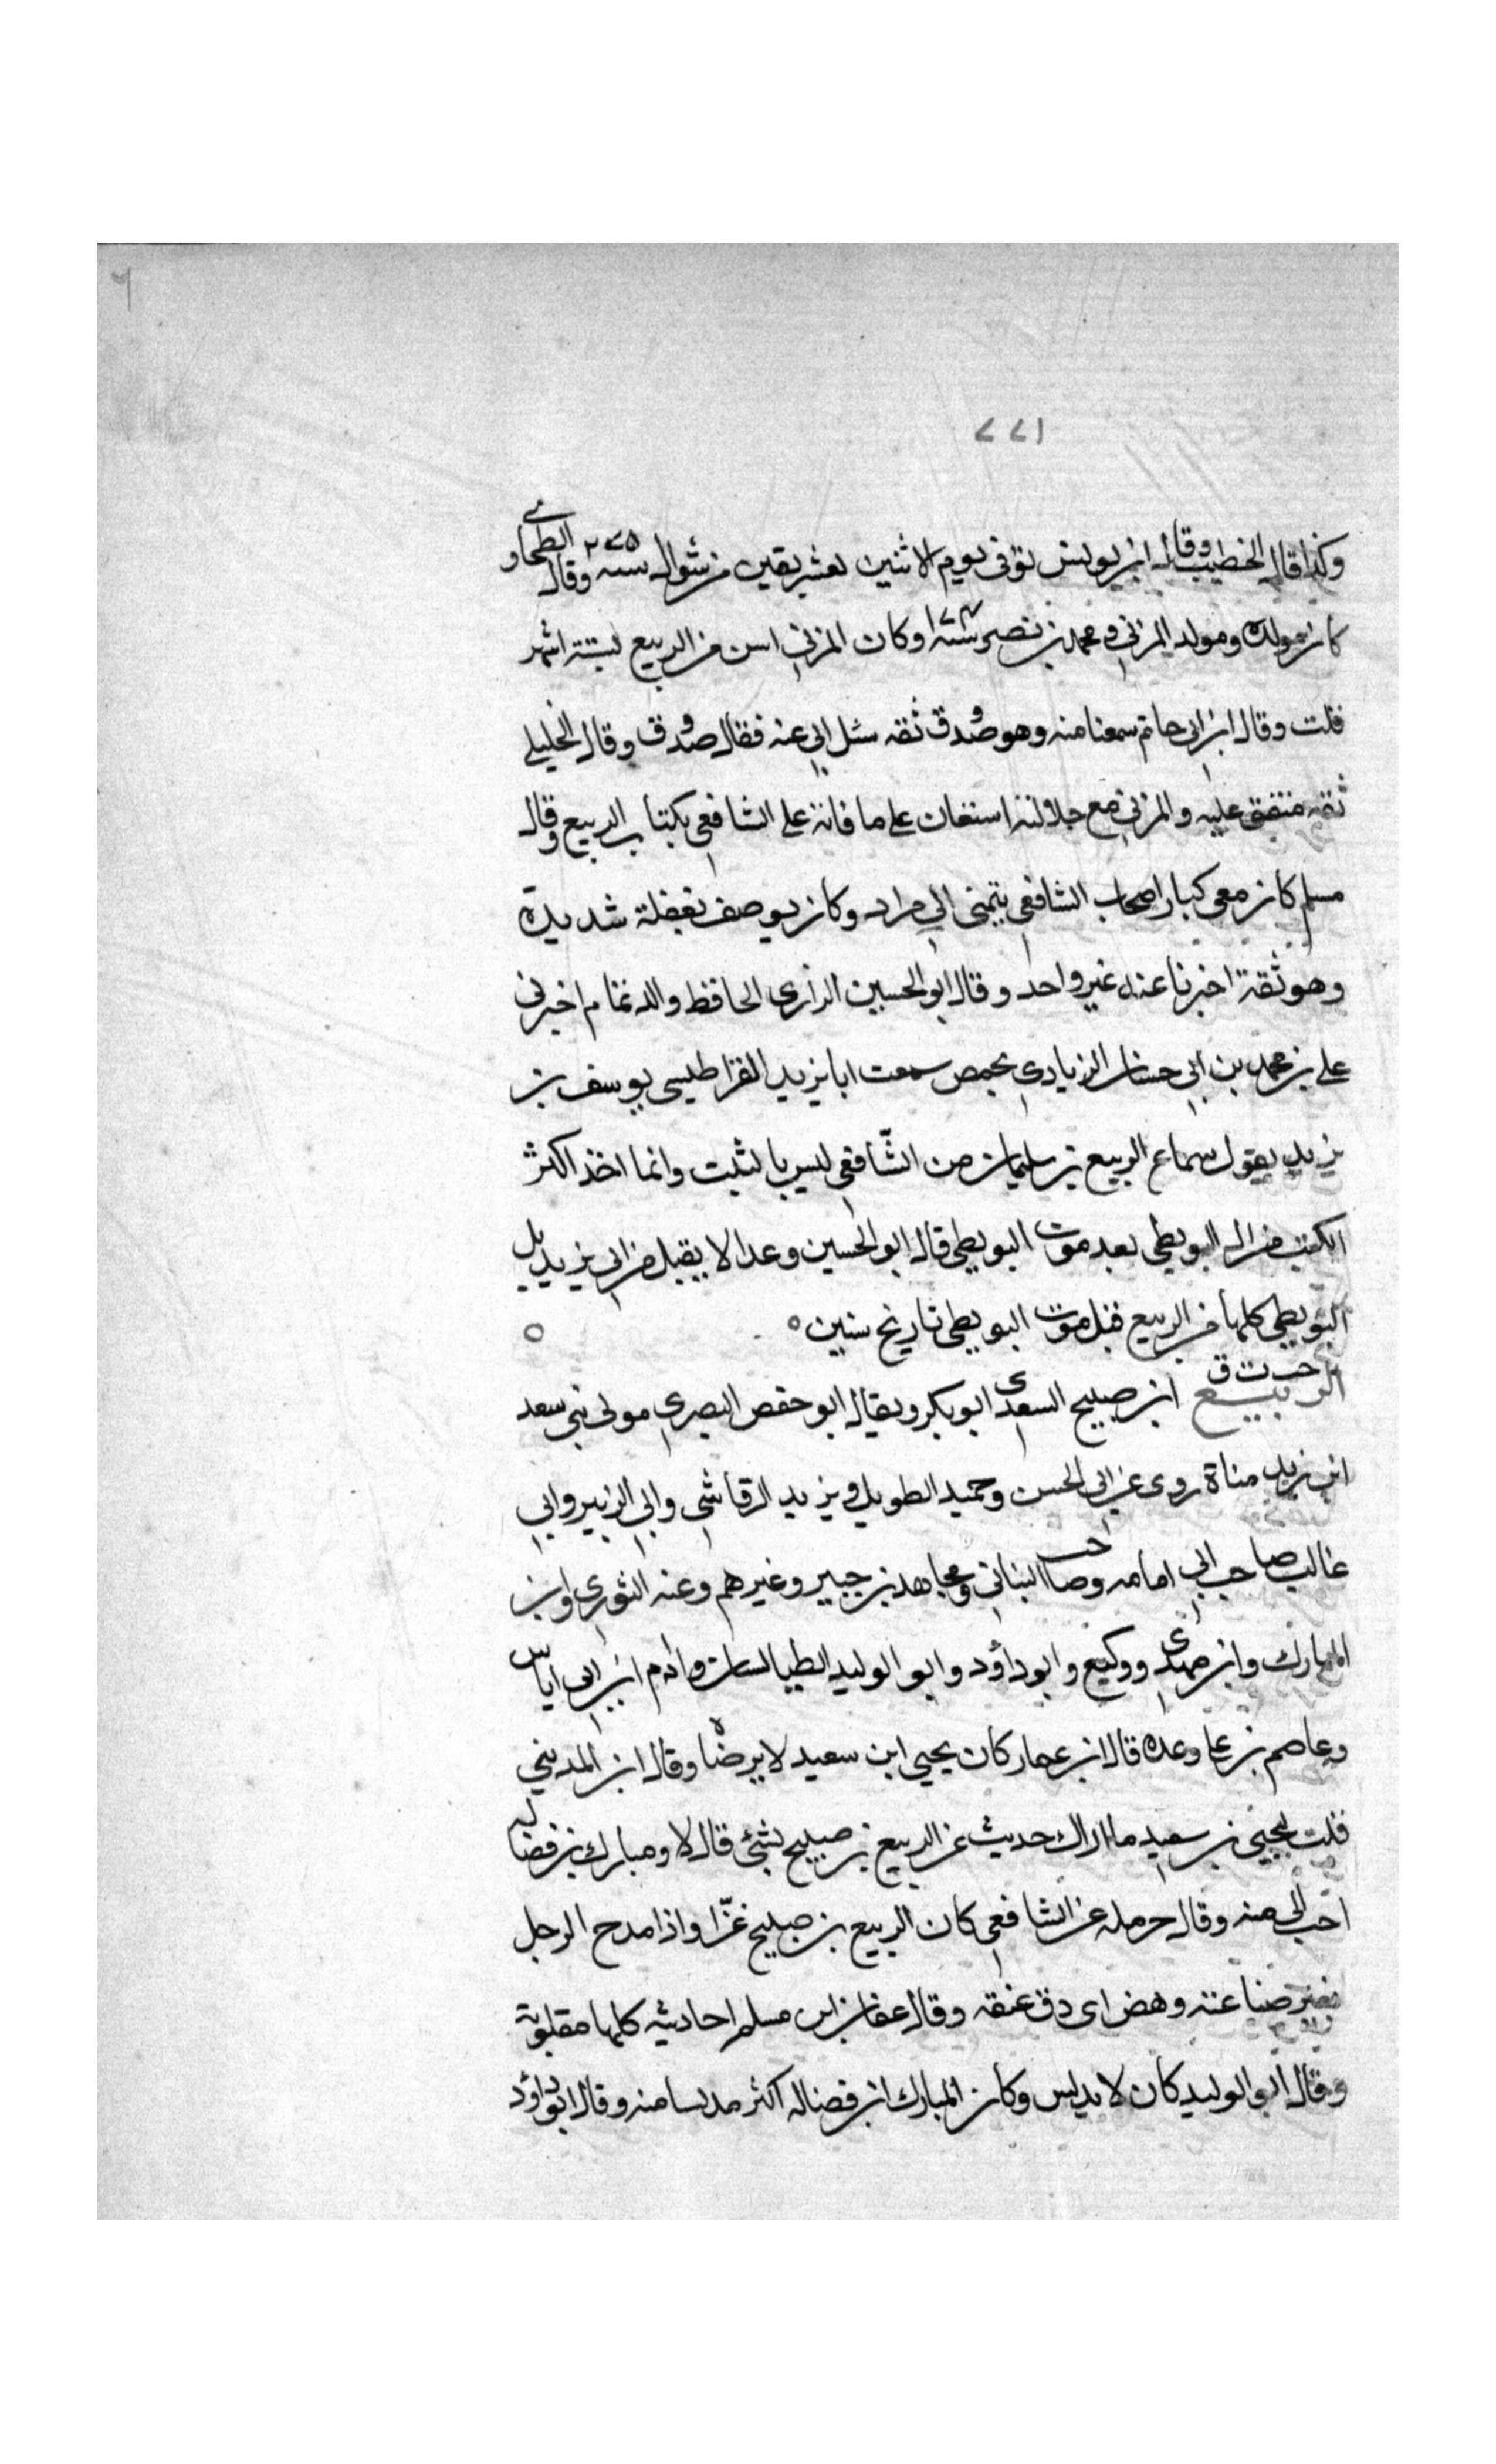 ٦
١٢٢
وكذا قال الخطيب وقال ابن يونس توفي يوم الاثنين لعشر بقين من شوال سنة ٢٧٥ وقال الطحاوي
كان مولده ومولد المزني ومحمد بن نصر سنة ١٧٤ وكان المزني اسن من الربيع لستة اشهر
قلت وقال ابن ابي حاتم سمعنا منه وهو صدوق ثقه سئل ابي عنه فقال صدوق وقال الخليلي
ثقه متفق عليه والمزني مع جلالته استعان على ما فاته على الشافعي بكتاب الربيع وقال
مسلم كان من كبار اصحاب الشافعي يتمنى الي مراد وكان يوصف بغفلة شديدة
وهو ثقة اخبرنا عنه غير واحد وقال ابو الحسين الرازى الحافظ والد تمام اخبرنى
على بن محمد بن ابي حسان الزيادي بحمص سمعت ابا يزيد القراطيسى يوسف بن
يزيد يقول سماع الربيع بن سليمان من الشّافعي ليس بالثبت وانما اخذ اكثر
الكتب من ال البويطي بعد موت البويطى قال ابو الحسين وعدا لا يقبل من ابى يزيد بل
البويطي كلها من الربيع قبل موت البويطى تاريخ سنين ه ه
خت ت ق
الربيع ابن صبيح السعدى ابو بكر ويقال ابو حفص البصري مولى بنى سعد
ابن زيد مناة روى عن ابى الحسن وحميد الطويل ويزيد الرقاشي وابي الزبير وابي
غالب صاحب ابي امامه وصاحب البناني ومجاهد بن جبير وغيرهم وعنه الثوري وابن
المبارك وابن مهدى ووكيع وابو داؤد وابو الوليد الطيالسان وادم ابن ابى اياس
وعاصم بن على وعده قال ابن عمار كان يحيى ابن سعيد لا يرضاه وقال ابن المديني
قلت ليحيى بن سعيد ما اراك حديث عن الربيع بن صبيح بشئ قال لا ومبارك بن فضاله
احب الي منه وقال حرمله عن الشافعي كان الربيع بن صبيح غزّا واذا مدح الرجل
بغير صناعته وهض اى دق عنقه وقال عفان ابن مسلم احاديثه كلها مقلوبة
وقال ابو الوليد كان لا يدلس وكان المبارك ابن فضاله اكثر مدلسا منه وقال ابو داؤد